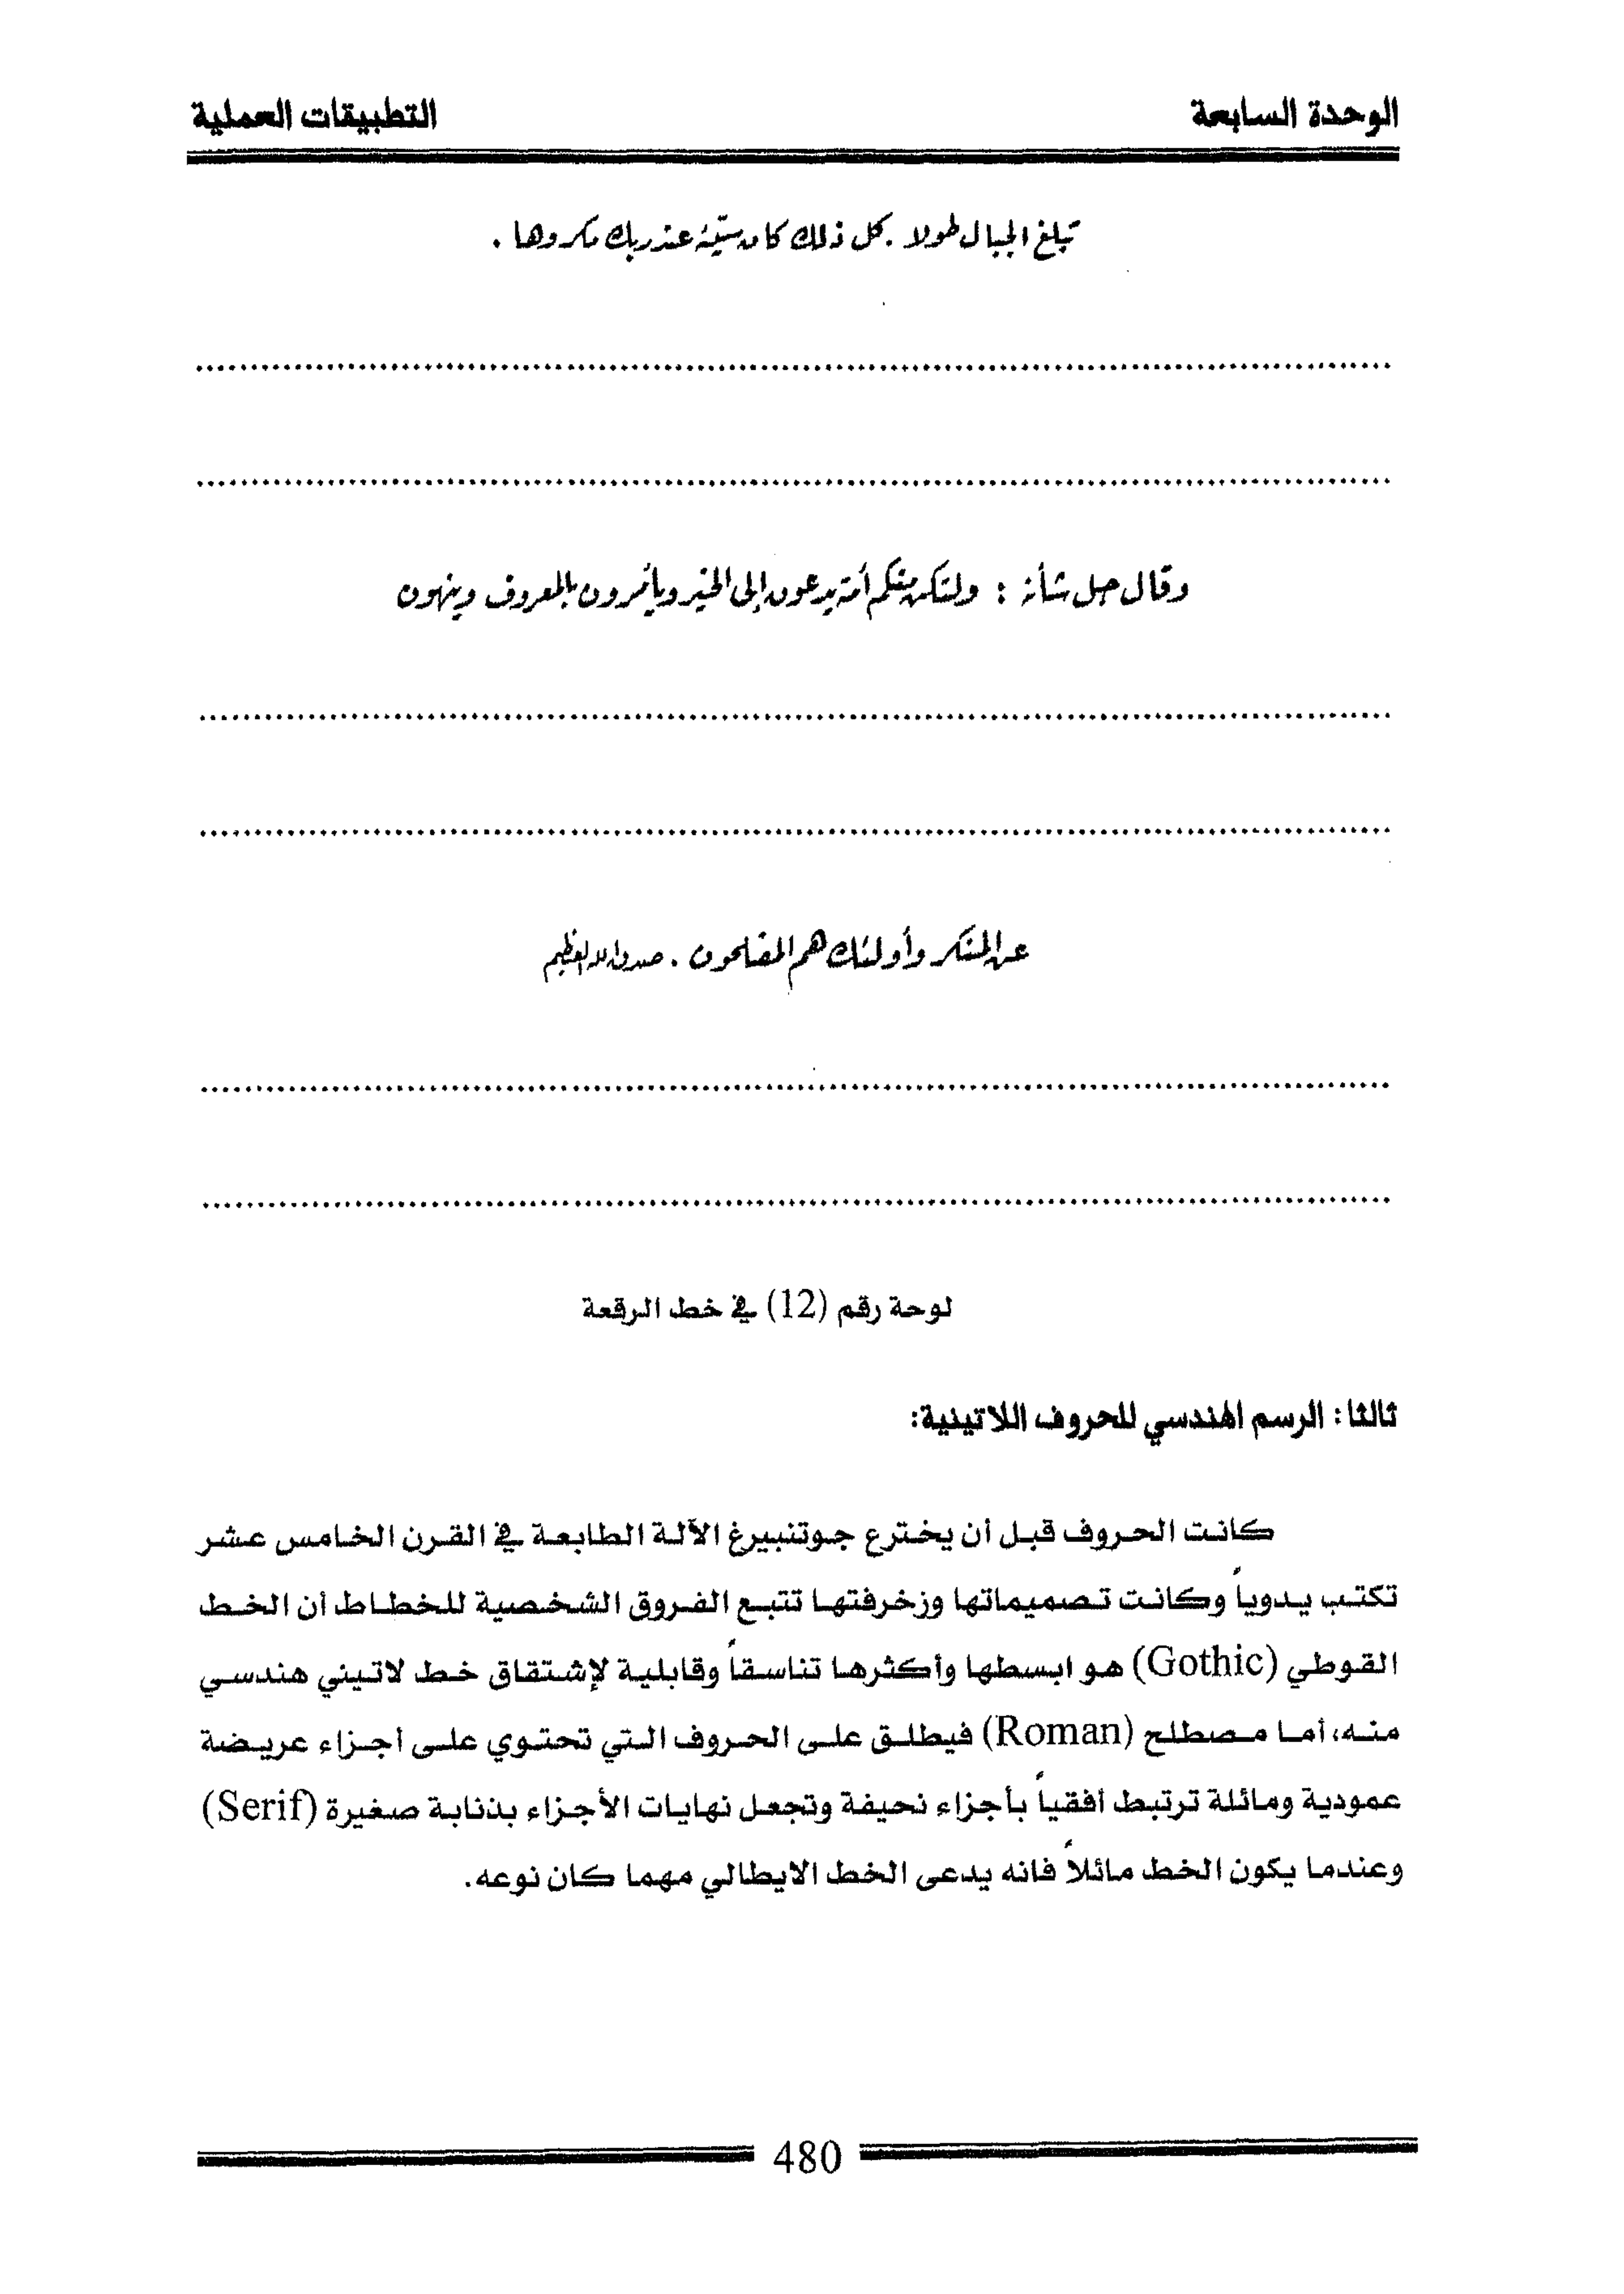 الوحدة السابعة
التطبيقات العملية
تبلغ الجبال طولا . كل ذلك كان سيّئه عند ربك مكروها .
................................................................
................................................................
وقال جل شأنه : ولتكن منكم أمة يدعون إلى الخير ويأمرون بالمعروف وينهون
................................................................
................................................................
عن المنكر وأولئك هم المفلحون . صدق الله العظيم
................................................................
................................................................
لوحة رقم (12) في خط الرقعة
ثالثا: الرسم الهندسي للحروف اللاتينية:
كانت الحروف قبل أن يخترع جوتنبيرغ الآلة الطابعة في القرن الخامس عشر
تكتب يدوياً وكانت تصميماتها وزخرفتها تتبع الفروق الشخصية للخطاط أن الخط
القوطي (Gothic) هو ابسطها وأكثرها تناسقاً وقابلية لإشتقاق خط لاتيني هندسي
منه، أما مصطلح (Roman) فيطلق على الحروف التي تحتوي على أجزاء عريضة
عمودية ومائلة ترتبط أفقياً بأجزاء نحيفة وتجعل نهايات الأجزاء بذنابة صغيرة (Serif)
وعندما يكون الخط مائلاً فانه يدعى الخط الايطالي مهما كان نوعه.
480